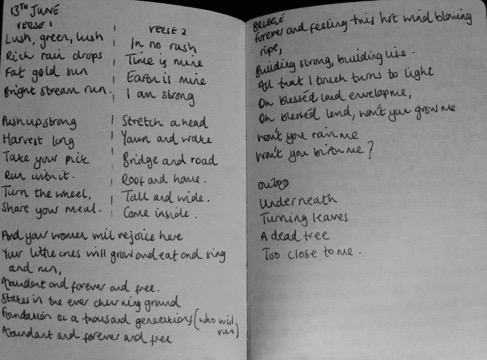 13TH JUNE
VERSE 1
Lush, green, lush
Rich rain drops
Fat gold sun
Bright stream run.
Push up strong
Harvest long
Take your pick
Run with it.
Turn the wheel,
Share your meal.
VERSE 2
In no rush
Time is mine
Earth is mine
I am strong
Stretch ahead
Yawn and wake
Bridge and road
Roof and home.
Tall and wide.
Come inside.
And your women will rejoice here
Your little ones will grow and eat and sing
and run,
Abundant and forever and free.
Stakes in the ever churning ground
Foundation of a thousand generations (who will run)
Abundant and forever and free
BRIDGE
Forever and feeling this hot wind blowing
ripe,
Building strong, building
All that I touch turns to light
Oh blessèd land envelop me,
Oh blessèd land, won't you grow me
Won't you rain me
Won't you birth me?
OUTRO
Underneath
Turning leaves
A dead tree
Too close to me.